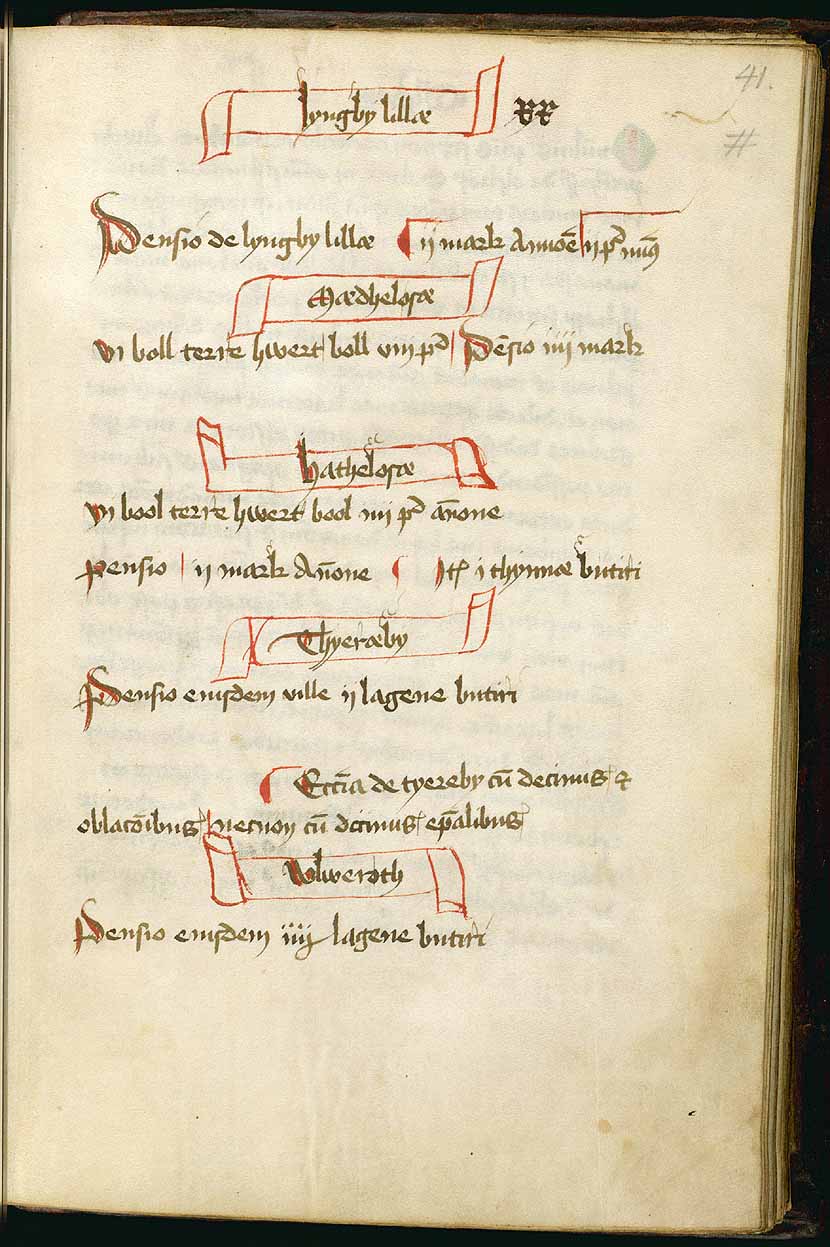 41.
lyngby lillæ xx
#
Pensio de lyngby lillæ ¶ ij mark Annōe ij pͬ minꝰ
Mædheloſæ
vi boll terre hwert boll viij pͬ Pēsio iiij mark
hatheloſæ
vi bool terre hwert bool iiij pͬ an̄one
pensio ij mark An̄one ¶ Itē i thynnæ butiri
Thyeræby
Pensio eiusdem ville ij lagene butiri
¶ Eccīa de tyereby cū decimis &
oblacōibus necnon cū decimis ep̄alibus
Wlweroth
Pensio eiusdem iiij lagene butiri